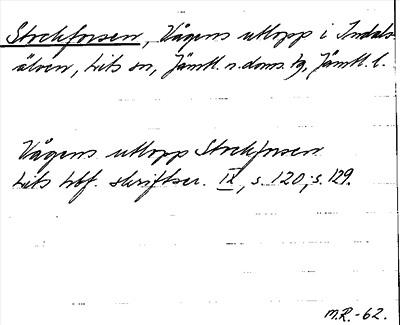 Stockforsen, Vågens utlopp i Indals-
älven, Lits sn, Jämtl. n. doms. tg, Jämtl. l.
Vågens utlopp Stockforsen
Lits hbf. skriftser. IX, s. 120; s. 129.
M.R.-62.